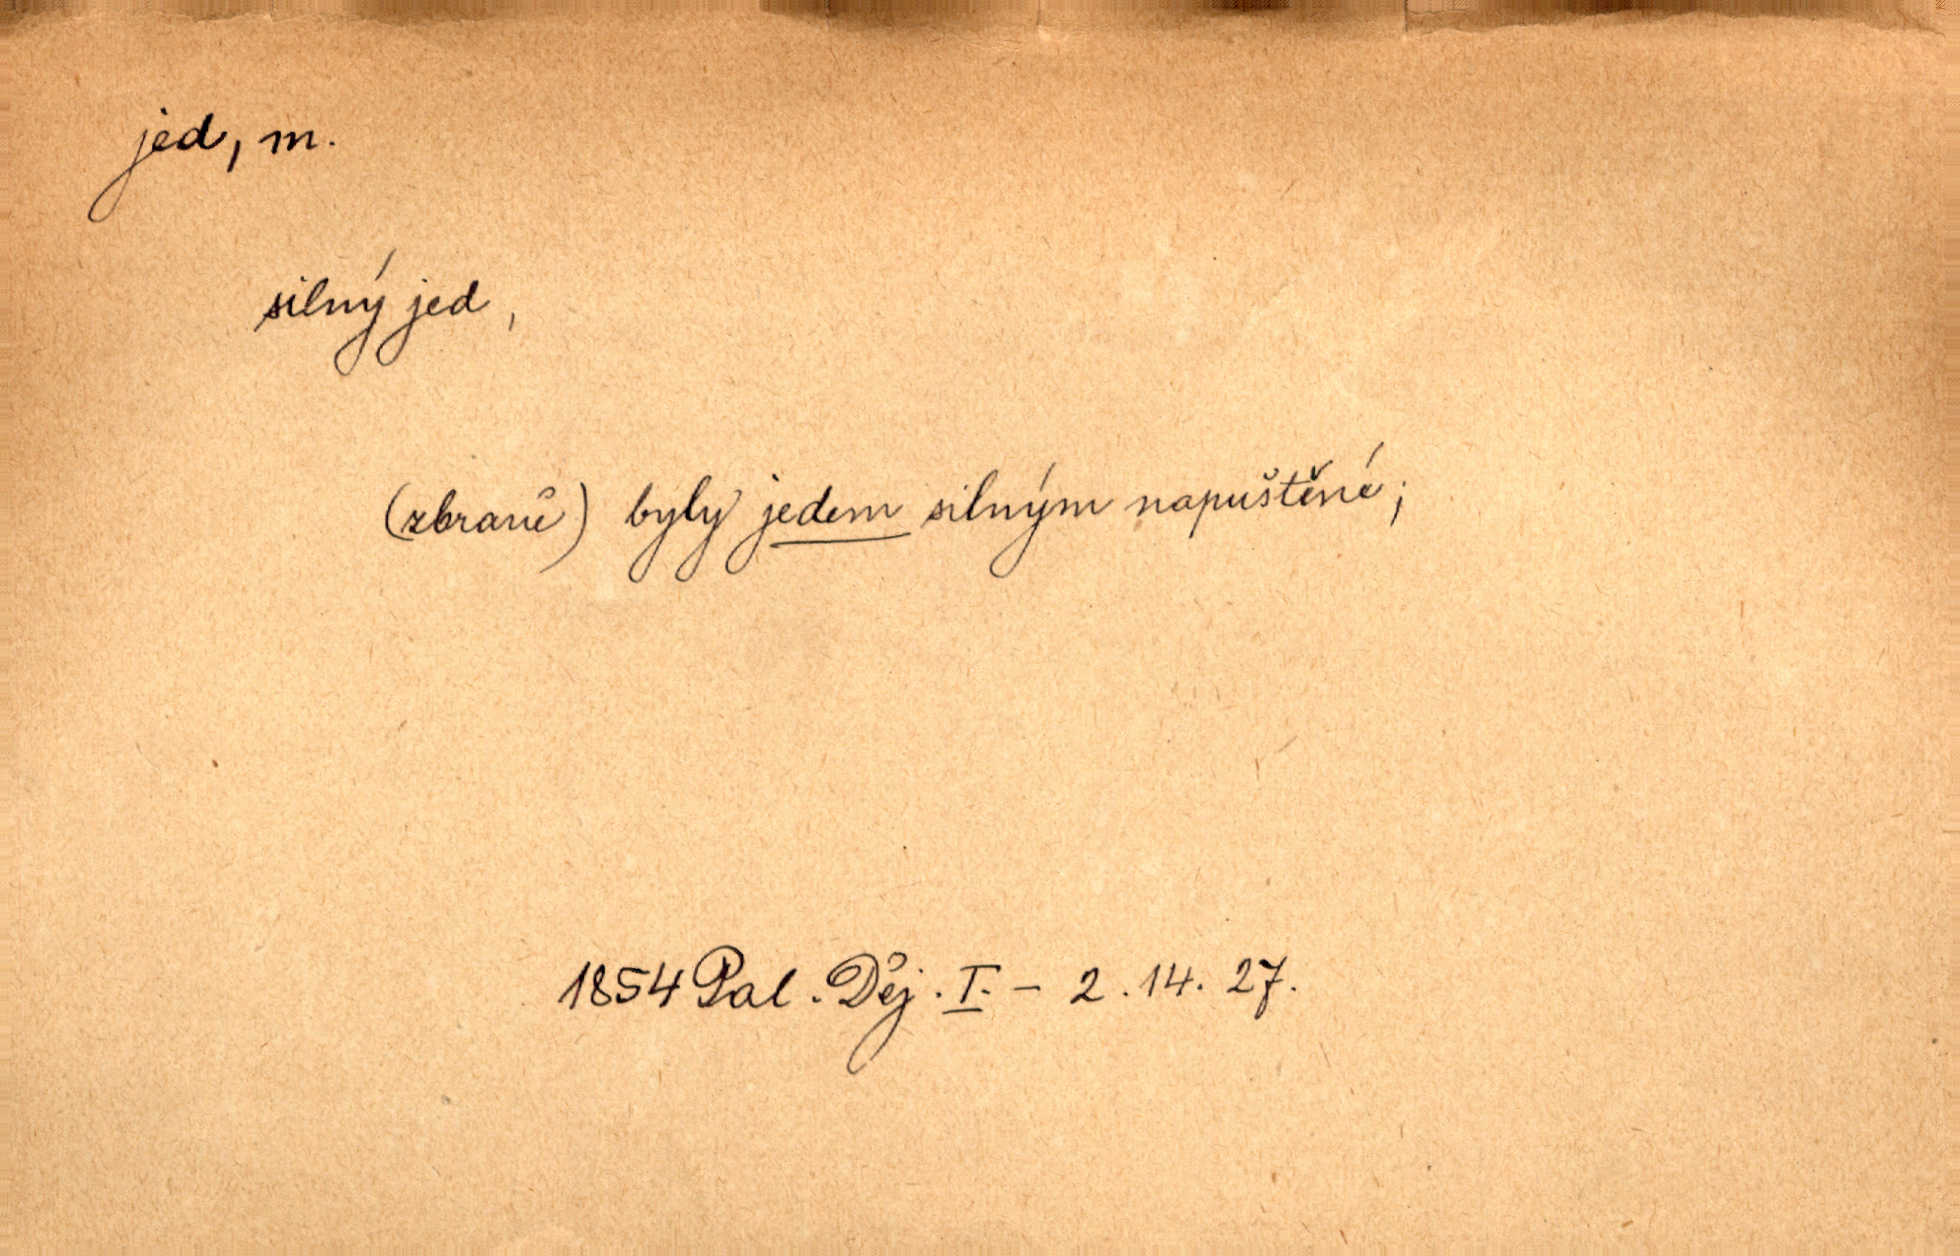 jed, m.
silný jed,
(zbraně) byly jedem silným napuštěné;
1854 Pal. Děj. I. - 2. 14. 27.